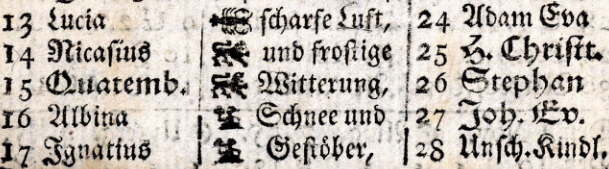 13 Lucia scharfe Luft, 24 Adam Eva
14 Nicasius und frostige 25 H. Christt.
15 Quatemb. Witterung, 26 Stephan
16 Albina Schnee und 27 Joh. Ev.
17 Ignatius Gestöber, 28 Unsch. Kindl.